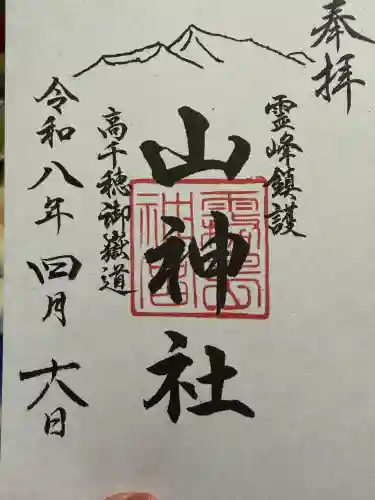 奉拝
霊峰鎮護
山神社
霧島神宮
高千穂御嶽道
令和八年四月十六日